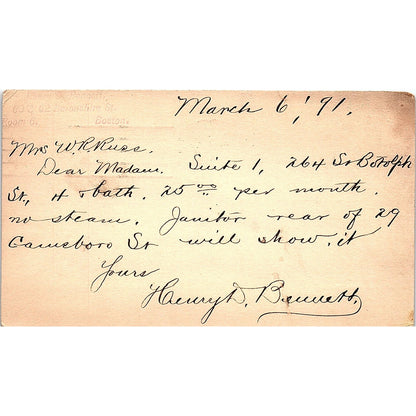 60 & 62 Devonshire St.
Room 6. Boston.
March 6, '91.
Mrs W. R. Russ.
Dear Madam. Suite 1, 264 St Botolph
St, 4 & bath. 25 00 per month.
no steam. Janitor rear of 29
Gainsboro St will show it
Yours
Henry D. Bennett,